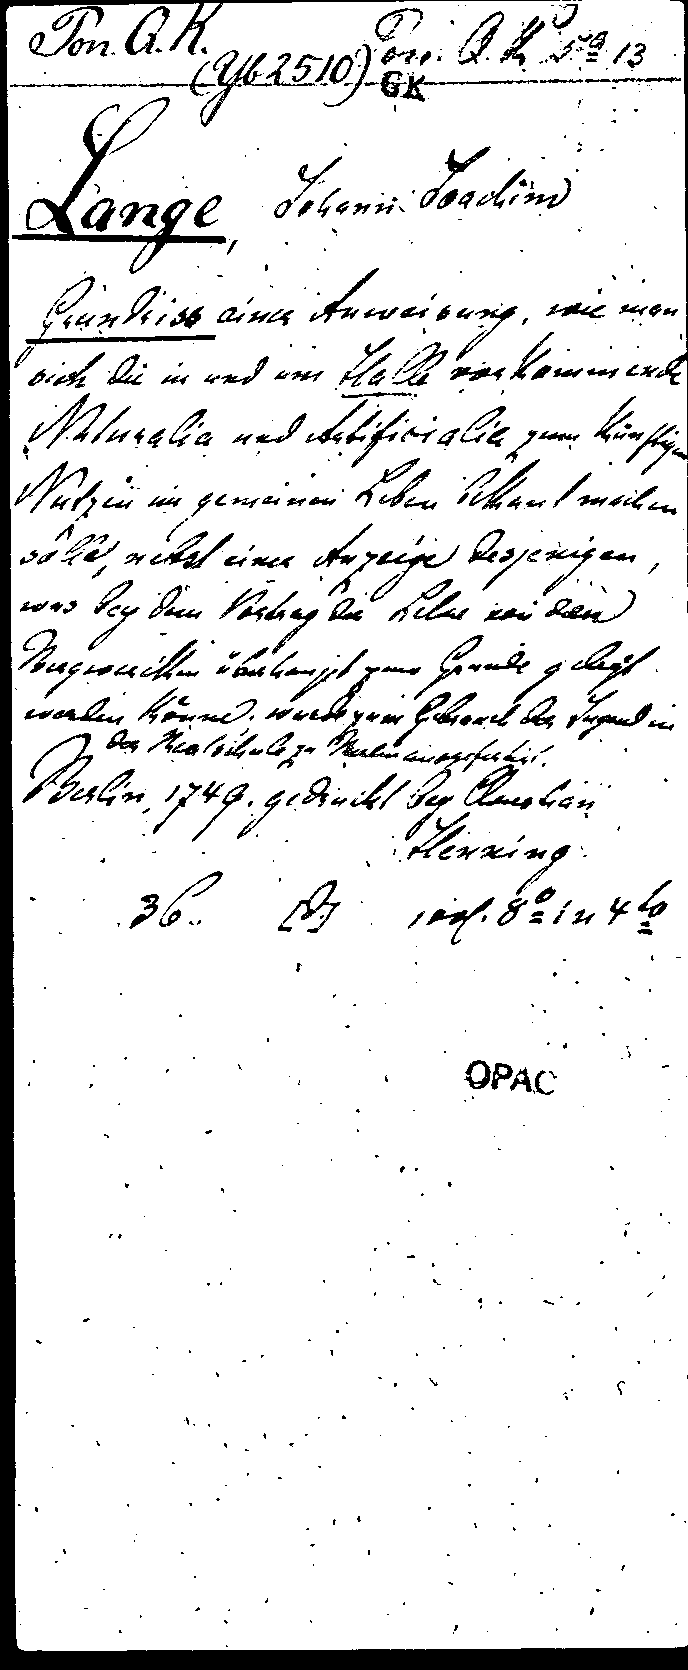 Pon. A. K.
(Yb 2510) Pon. Q. K. 5 13
GK
Lange, Johann Joachim
Grundriss einer Anweisung, wie man
sich die in und um Halle vorkommende
Naturalia und Artificialia zum künftigen
Nutzen im gemeinen Leben bekant machen
solle, nebst einer Anzeige desjenigen,
was bey dem Vortrag der Lehre von den
Bergwercken überhaupt zum Grunde gelegt
werden könne. zum Gebrauch der Jugend in
der Realschule zu Berlin ausgefertiget.
Berlin, 1749. gedruckt bey Christian
Henning.
36. 8º in 4to
OPAC